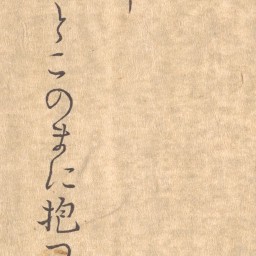 とこのまに抱